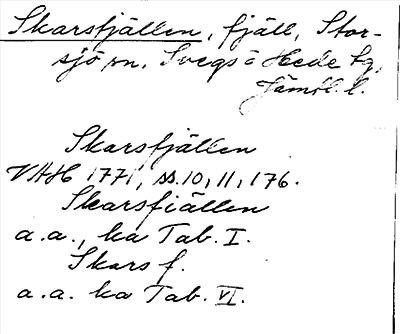 Skarsfjällen, fjäll, Stor-
sjö sn, Svegs o Hede tg,
Jämtl. l.
Skarsfjällen
VAH 1771, ss. 10, 11, 176.
Skarsfiällen
a.a., ka Tab. I.
Skars f.
a.a. ka Tab. VI.